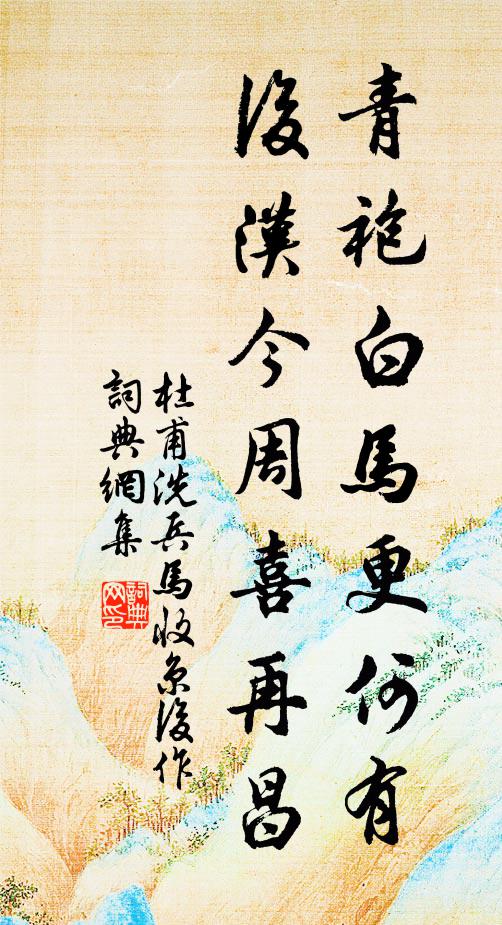 青袍白馬更何有
後漢今周喜再昌
杜甫洗兵馬收京後作
詞典網集
詞典
网印